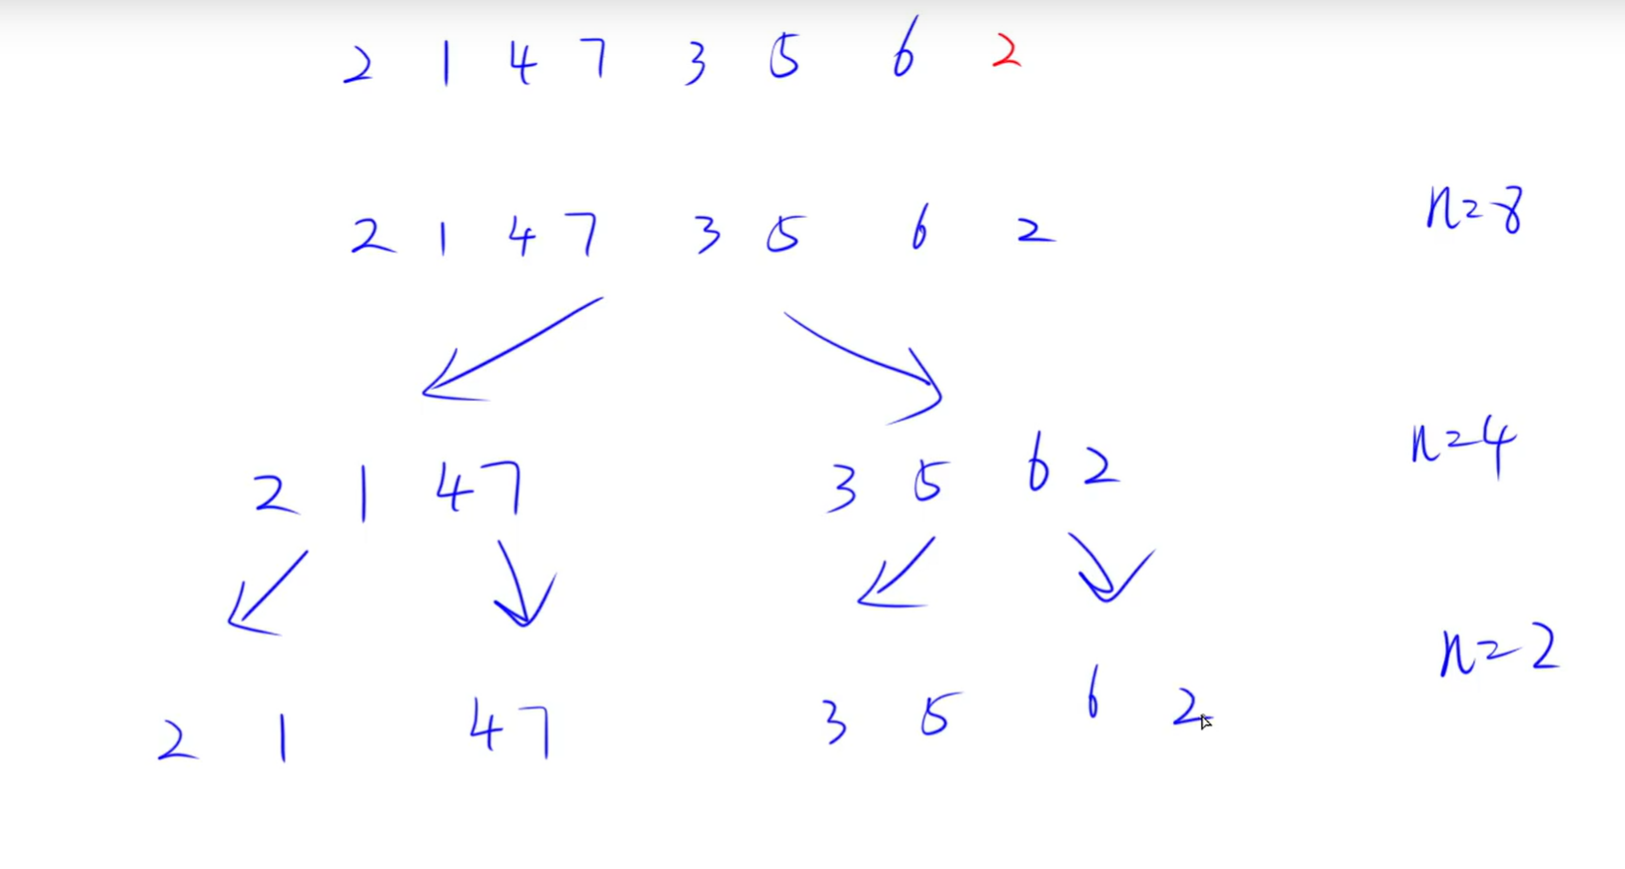 2 1 4 7 3 5 6 2
2 1 4 7 3 5 6 2 n=8
2 1 4 7 3 5 6 2 n=4
2 1 4 7 3 5 6 2 n=2